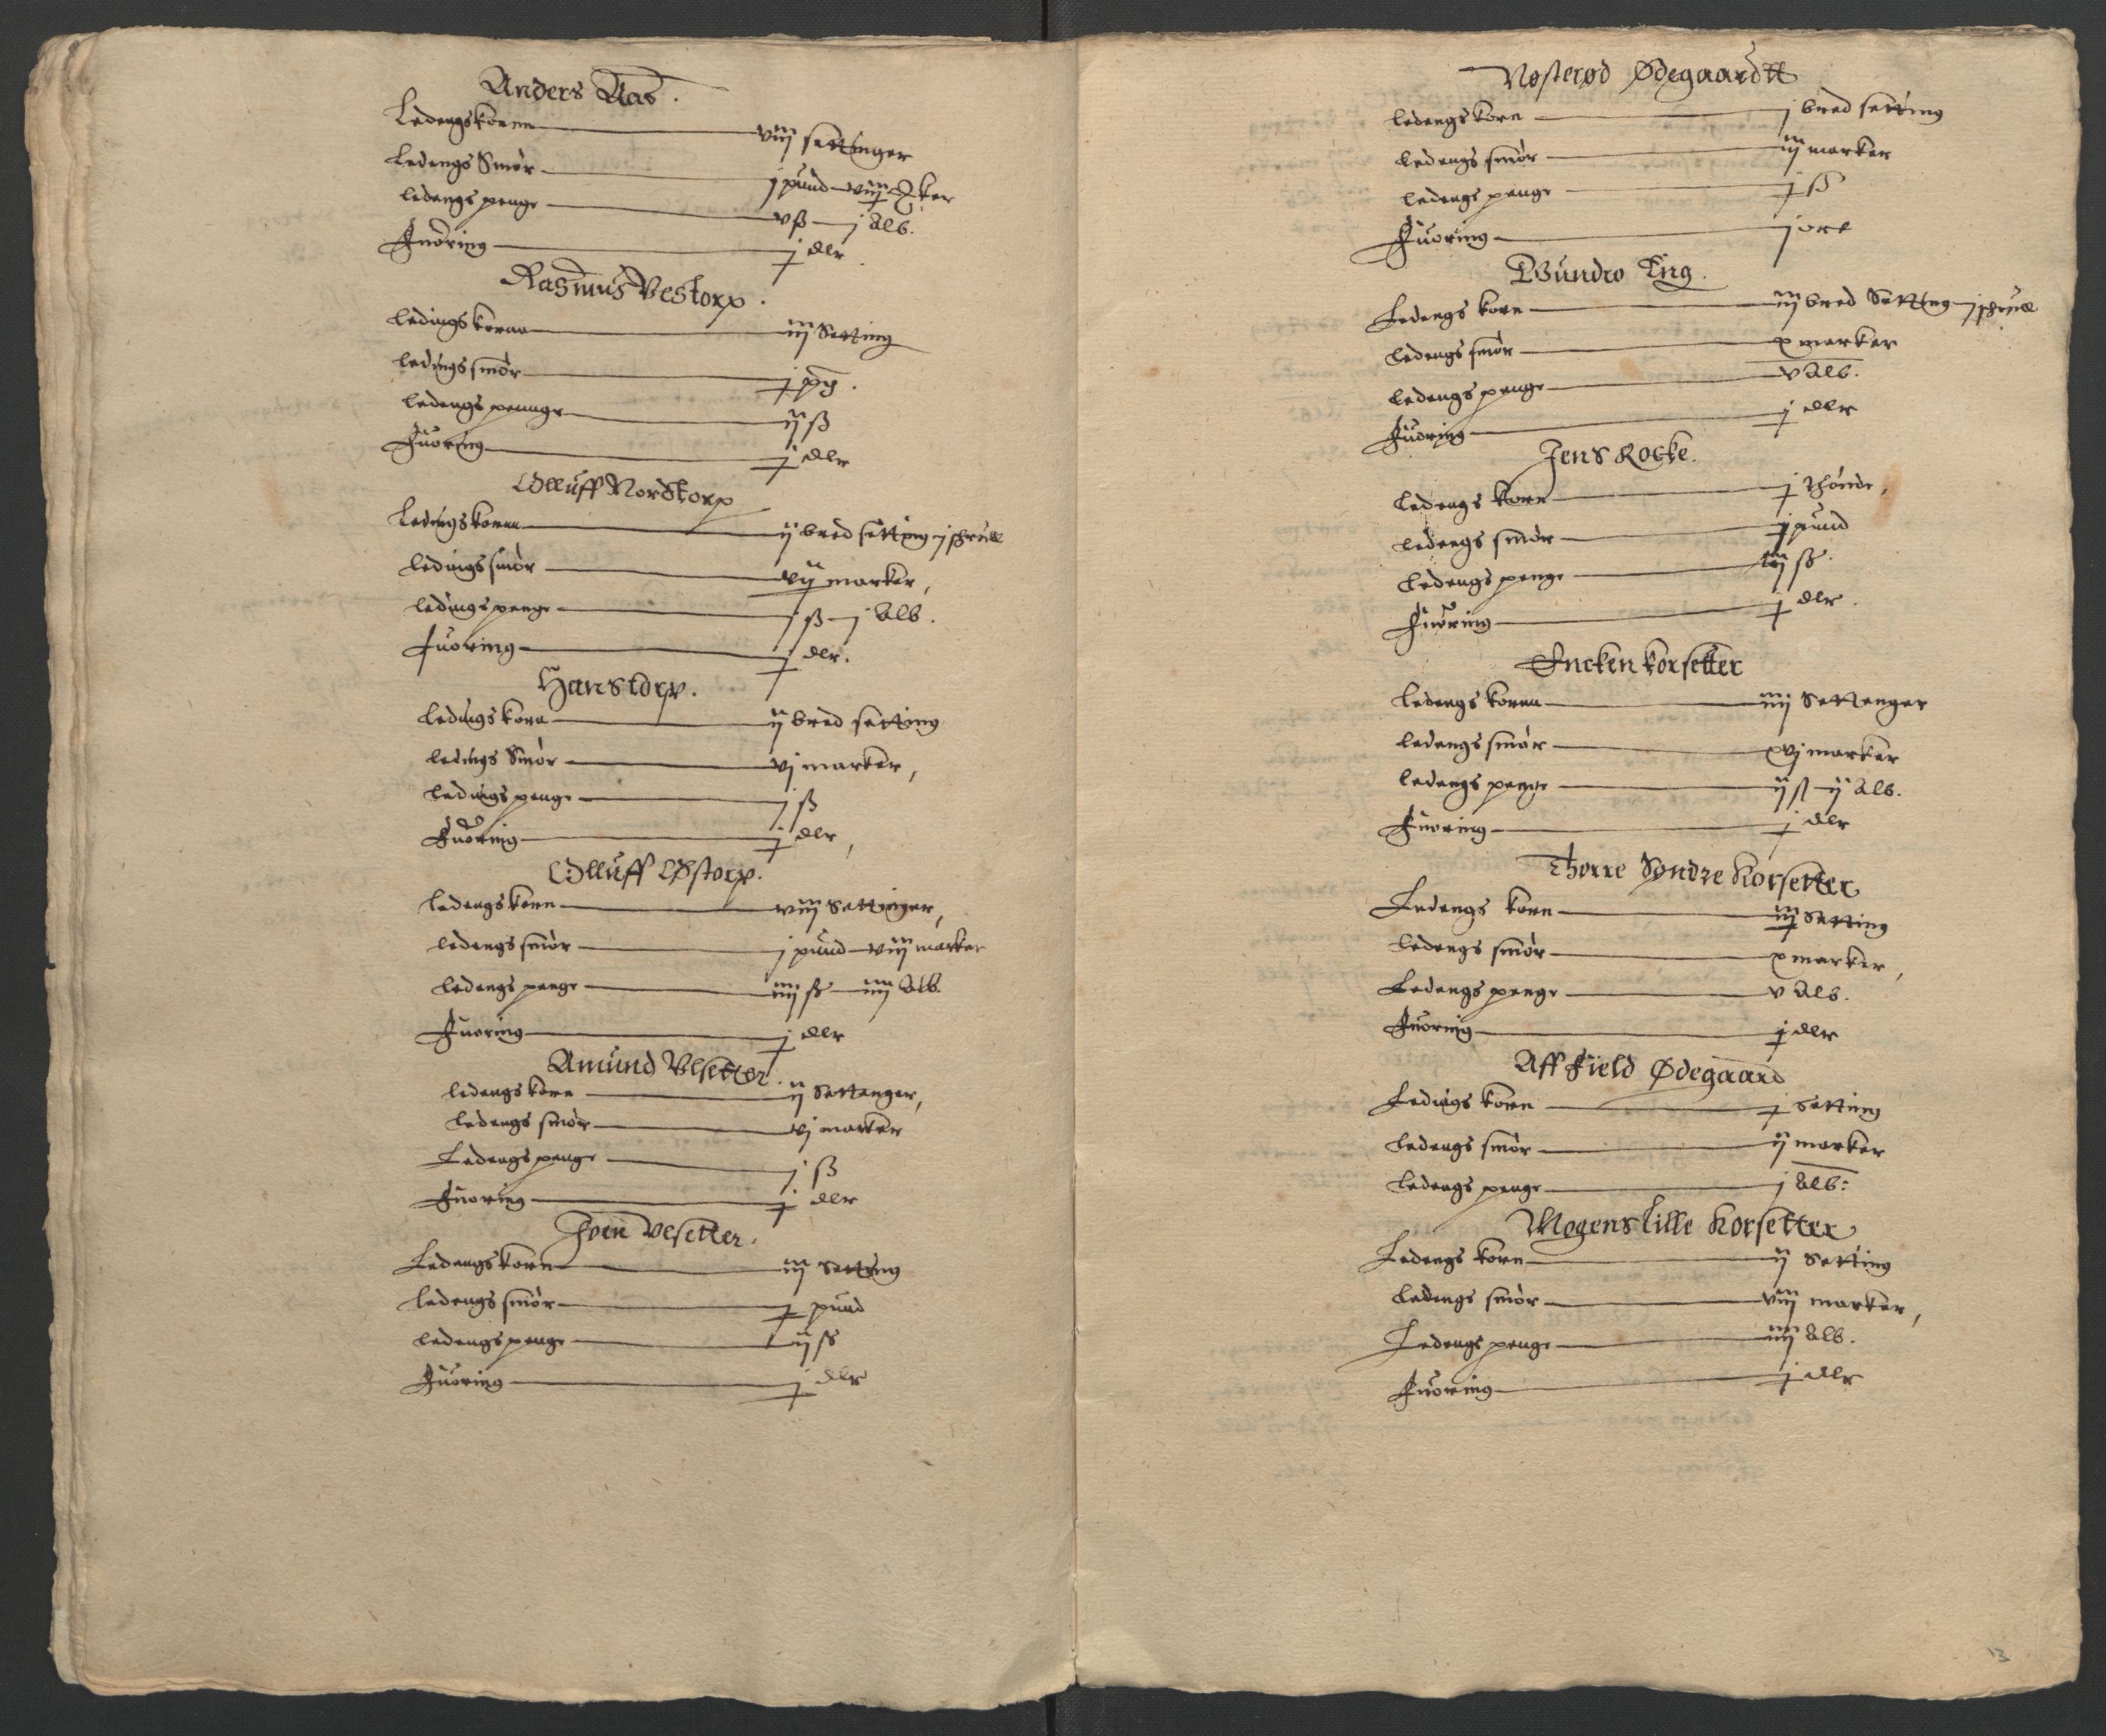 Anders Aas.
Ledengskornn — viij settinger
Ledengs Smør — j pund — viij mker
ledengs penge — v ß — j Alb.
Fuoring — j dlr
Rasmus Vestorp.
Ledings kornn — iij Setting
ledings smør — j pd.
ledengs pennge — ij ß
Fuoring — j dlr
Olluff Nordtorp
Ledings kornn — ij bred setting j schrull
ledings smør — vij marker,
ledings penge — j ß — j Alb.
Fuoring — j dlr.
Hanstorp.
Ledings korn — ij bred setting
ledings Smør — vj marker,
ledings penge — j ß
Fuoring — j dlr,
Olluff Østorp.
ledengs korn — viij Settinger,
ledengs smør — j pund — viij marker
ledengs penge — iiij ß — iiij Alb.
Fuoring — j dlr
Amund Vlsetter.
ledengs korn — ij Settenger,
ledengs smør — vj marker
Ledengs penge — j ß
Fuoring — j dlr
Joen Vesetter.
Ledengs korn — iij Setting
ledengs smør — j pund
ledengs penge — ij ß
Fuoring — j dlr
Nosterød Ødegaardtt
ledengs korn — j bred setting
ledengs smør — iij marker
ledengs penge — j ß
Fuoring — j ort
Gundro Eng.
Ledengs korn — iij bred Setting j schrull
ledengs smør — x marker
ledengs penge — v Alb.
Fuoring — j dlr
Jens Rocke.
ledengs korn — j thønde,
ledengs smør — j pund
ledengs penge — iij ß.
Fuoring — j dlr.
Encken korsetter
ledengs kornn — iiij Settenger
ledengs smør — xvj marker
ledengs penge — ij ß — ij Alb.
Fuoring — j dlr
Thorre Syndre Korsetter
Ledengs korn — iij Setting
ledengs smør — x marker,
Ledengs penge — v Alb.
Fuoring — j dlr
Aff Field Ødegaard
Ledings korn — j Setting
ledengs smør — ij marker
ledengs penge — j Alb:
Mogens lille Korsetter
Ledengs korn — ij Setting
ledengs smør — viij marker,
Ledengs penge — iiij Alb.
Fuoring — j dlr
13